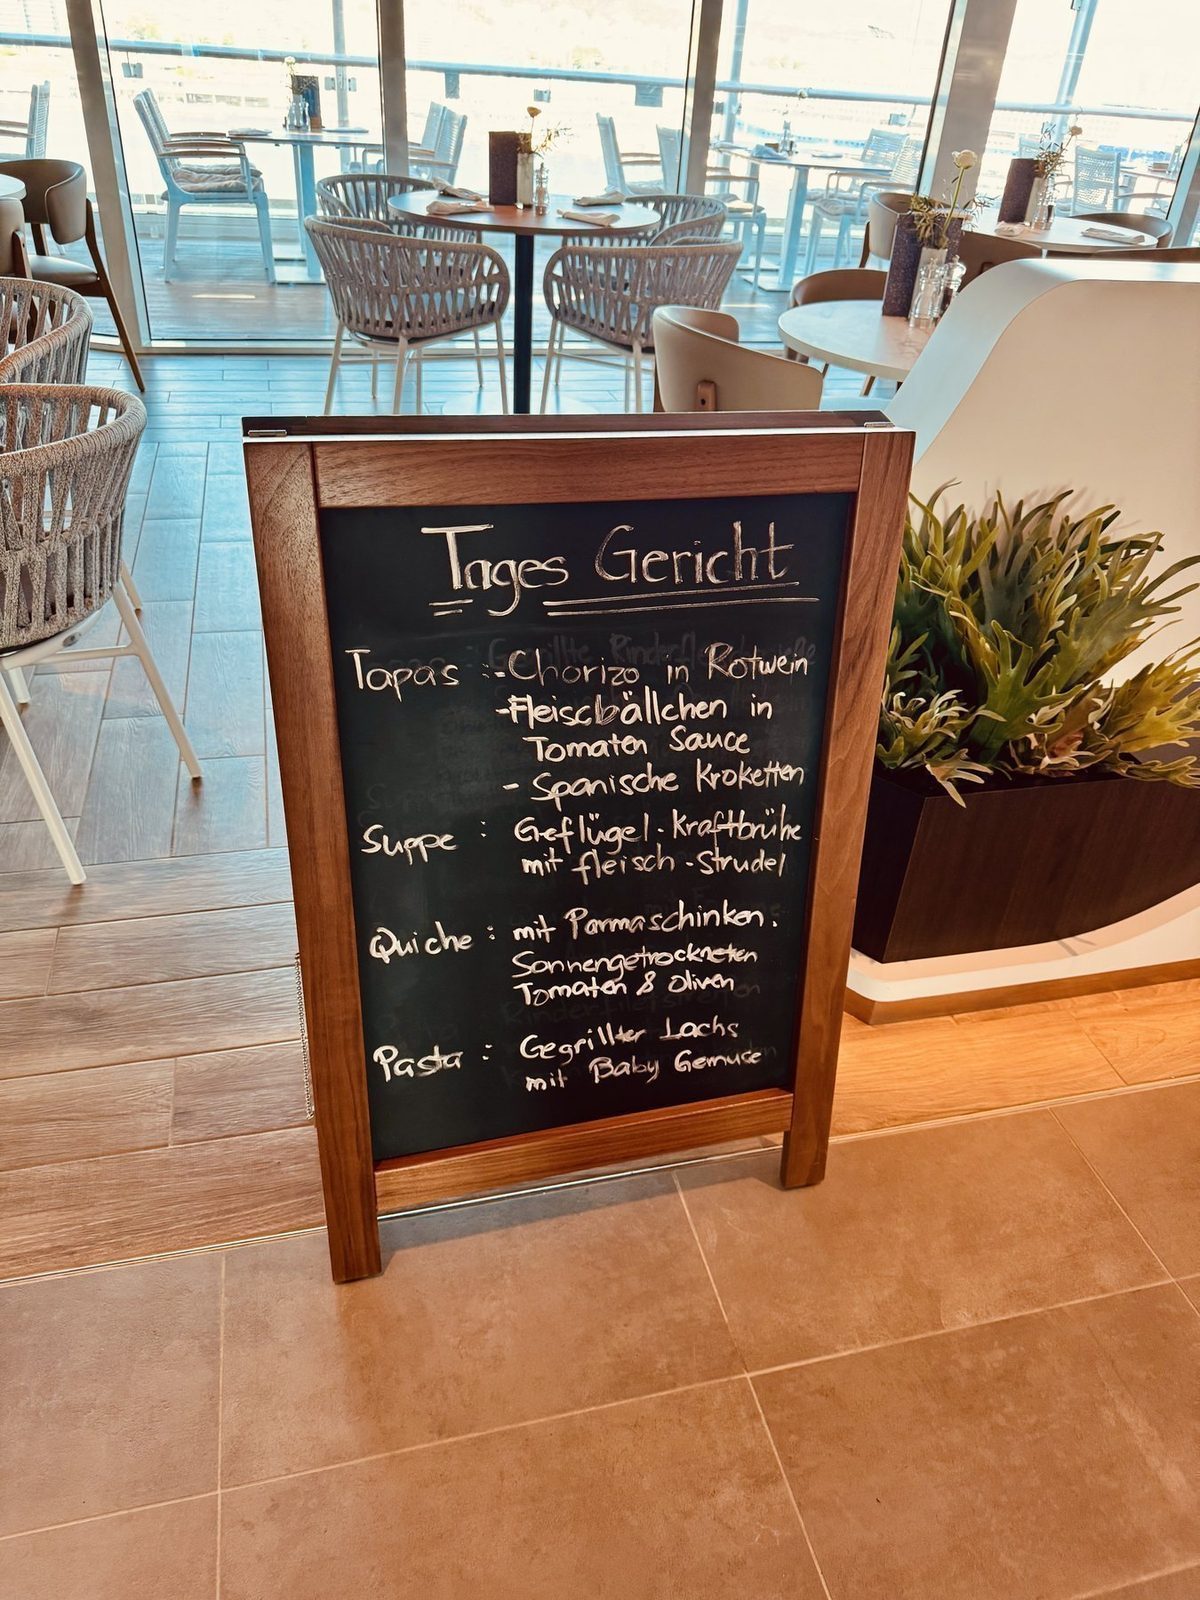 Tages Gericht
Tapas : - Chorizo in Rotwein
- Fleischbällchen in
Tomaten Sauce
- Spanische Kroketten
Suppe : Geflügel-Kraftbrühe
mit fleisch-Strudel
Quiche : mit Parmaschinken.
Sonnengetrockneten
Tomaten & Oliven
Pasta : Gegrillter Lachs
mit Baby Gemuse